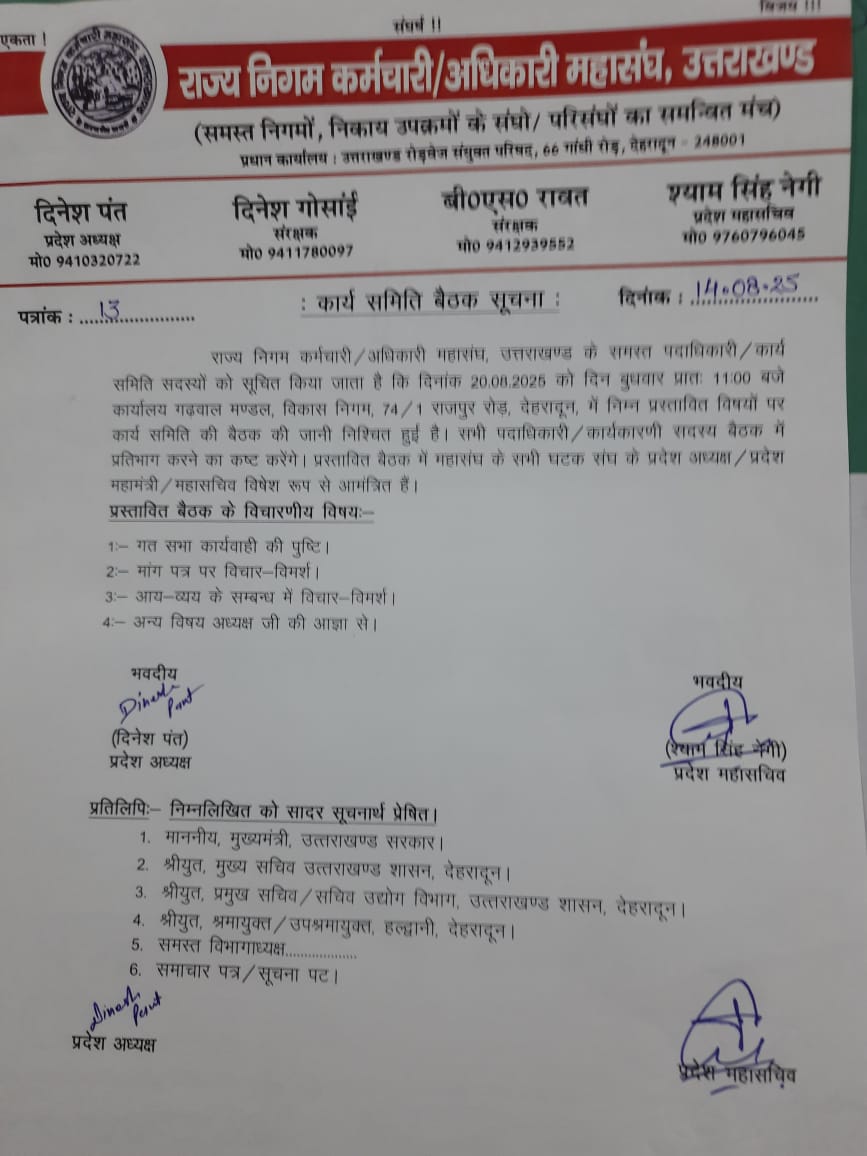 एकता !
संघर्ष !!
विजय !!!
राज्य निगम कर्मचारी/अधिकारी महासंघ, उत्तराखण्ड
(समस्त निगमों, निकाय उपक्रमों के संघो/ परिसंघों का समन्वित मंच)
प्रधान कार्यालय : उत्तराखण्ड रोडवेज संयुक्त परिषद, 66 गांधी रोड़, देहरादून - 248001
दिनेश पंत
प्रदेश अध्यक्ष
मो0 9410320722
दिनेश गोसांई
संरक्षक
मो0 9411780097
बी0एस0 रावत
संरक्षक
मो0 9412939552
श्याम सिंह नेगी
प्रदेश महासचिव
मो0 9760796045
पत्रांक : ....13....................
: कार्य समिति बैठक सूचना :
दिनांक : 14.08.25
राज्य निगम कर्मचारी/अधिकारी महासंघ, उत्तराखण्ड के समस्त पदाधिकारी/कार्य
समिति सदस्यों को सूचित किया जाता है कि दिनांक 20.08.2025 को दिन बुधवार प्रातः 11:00 बजे
कार्यालय गढ़वाल मण्डल, विकास निगम, 74/1 राजपुर रोड़, देहरादून, में निम्न प्रस्तावित विषयों पर
कार्य समिति की बैठक की जानी निश्चित हुई है। सभी पदाधिकारी/कार्यकारणी सदस्य बैठक में
प्रतिभाग करने का कष्ट करेंगे। प्रस्तावित बैठक में महासंघ के सभी घटक संघ के प्रदेश अध्यक्ष/प्रदेश
महामंत्री/महासचिव विषेश रूप से आमंत्रित हैं।
प्रस्तावित बैठक के विचारणीय विषयः–
1:– गत सभा कार्यवाही की पुष्टि।
2:– मांग पत्र पर विचार–विमर्श।
3:– आय–व्यय के सम्बन्ध में विचार–विमर्श।
4:– अन्य विषय अध्यक्ष जी की आज्ञा से।
भवदीय
Dinesh
Pant
(दिनेश पंत)
प्रदेश अध्यक्ष
भवदीय
(श्याम सिंह नेगी)
प्रदेश महासचिव
प्रतिलिपिः– निम्नलिखित को सादर सूचनार्थ प्रेषित।
1. माननीय, मुख्यमंत्री, उत्तराखण्ड सरकार।
2. श्रीयुत, मुख्य सचिव उत्तराखण्ड शासन, देहरादून।
3. श्रीयुत, प्रमुख सचिव/सचिव उद्योग विभाग, उत्तराखण्ड शासन, देहरादून।
4. श्रीयुत, श्रमायुक्त/उपश्रमायुक्त, हल्द्वानी, देहरादून।
5. समस्त विभागाध्यक्ष..................
6. समाचार पत्र/सूचना पट।
Dinesh
Pant
प्रदेश अध्यक्ष
प्रदेश महासचिव